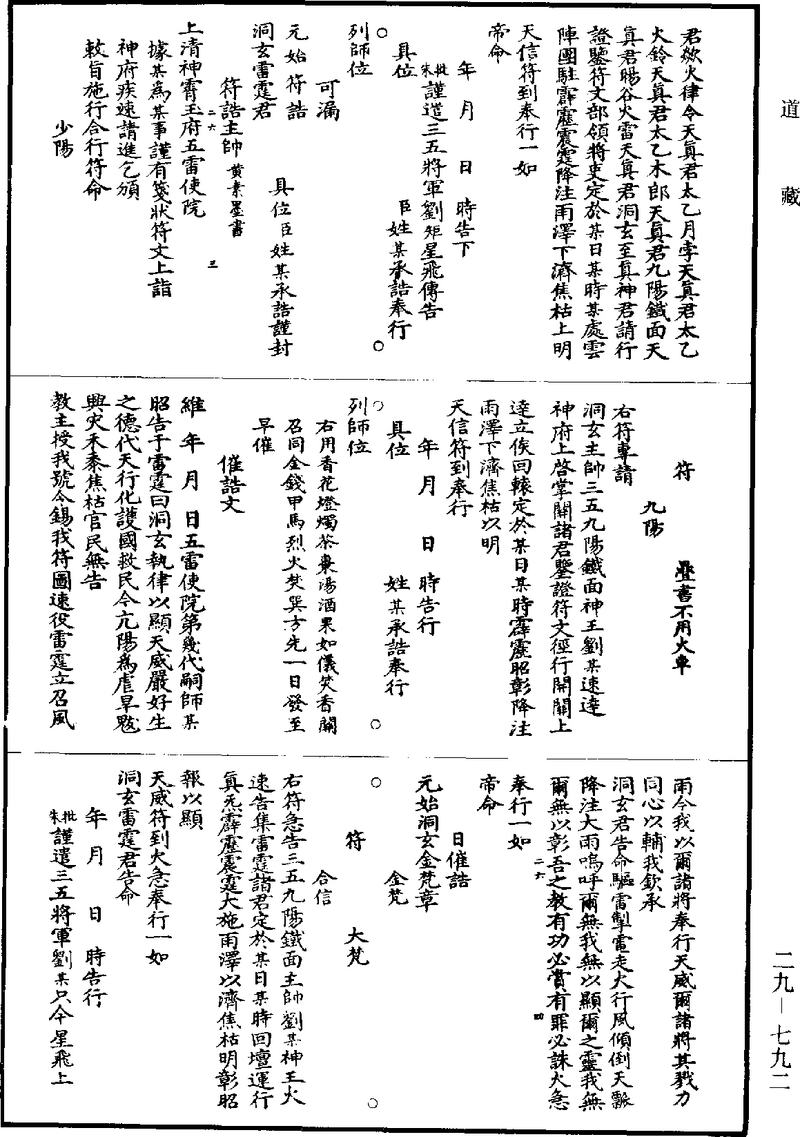 道藏
君歘火律令天真君太乙月孛天真君太乙
火鈴天真君太乙木郎天真君九陽鐵面天
真君暘谷火雷天真君洞玄至真神君請行
證鑒符文部領將吏定於某日某時某處雲
陣團駐霹靂震霆降注雨澤下濟焦枯上明
天信符到奉行一如
帝命
年 月 日 時告下
朱批謹遣三五將軍劉矩星飛傳告
具位 臣姓某承誥奉行
○ ○
列師位
可漏
元始符誥
洞玄雷霆君 具位臣姓某承誥謹封
符誥主帥 黄素墨書
二六 三
上清神霄玉府五雷使院
據某為某事謹有箋狀符文上詣
神府疾速請進乞頒
敕旨施行合行符命
少陽
符 疊書不用火車
九陽
右符專請
洞玄主帥三五九陽鐵面神王劉某速達
神府上啓掌闢諸君鑒證符文徑行開闢上
達立俟回轅定於某日某時霹靂昭彰降注
雨澤下濟焦枯以明
天信符到奉行
年 月 日 時告行
具位 姓某承誥奉行
○ ○
列師位
右用香花燈燭茶棗湯酒果如儀焚香關
召同金錢甲馬烈火焚巽方先一日發至
早催
催誥文
維 年 月 日五雷使院第幾代嗣師某
昭告于雷霆曰洞玄執律以顯天威嚴好生
之德代天行化護國救民今亢陽為虐旱魃
興災禾黍焦枯官民無告
教主授我號令錫我符圖速役雷霆立召風
雨今我以爾諸將奉行天威爾諸將其戮力
同心以輔我欽承
洞玄君告命驅雷掣電走火行風傾倒天瓢
降注大雨嗚呼爾無我無以顯爾之靈我無
爾無以彰吾之教有功必賞有罪必誅火急
二六 四
奉行一如
帝命
日催誥
元始洞玄金梵章
金梵
○ 符 大梵 ○
合信
右符急告三五九陽鐵面主帥劉某神王火
速告集雷霆諸君定於某日某時回壇運行
真炁霹靂震霆大施雨澤以濟焦枯明彰昭
報以顯
天威符到火急奉行一如
洞玄雷霆君告命
年 月 日 時告行
朱批謹遣三五將軍劉某只今星飛上
二九—七九二